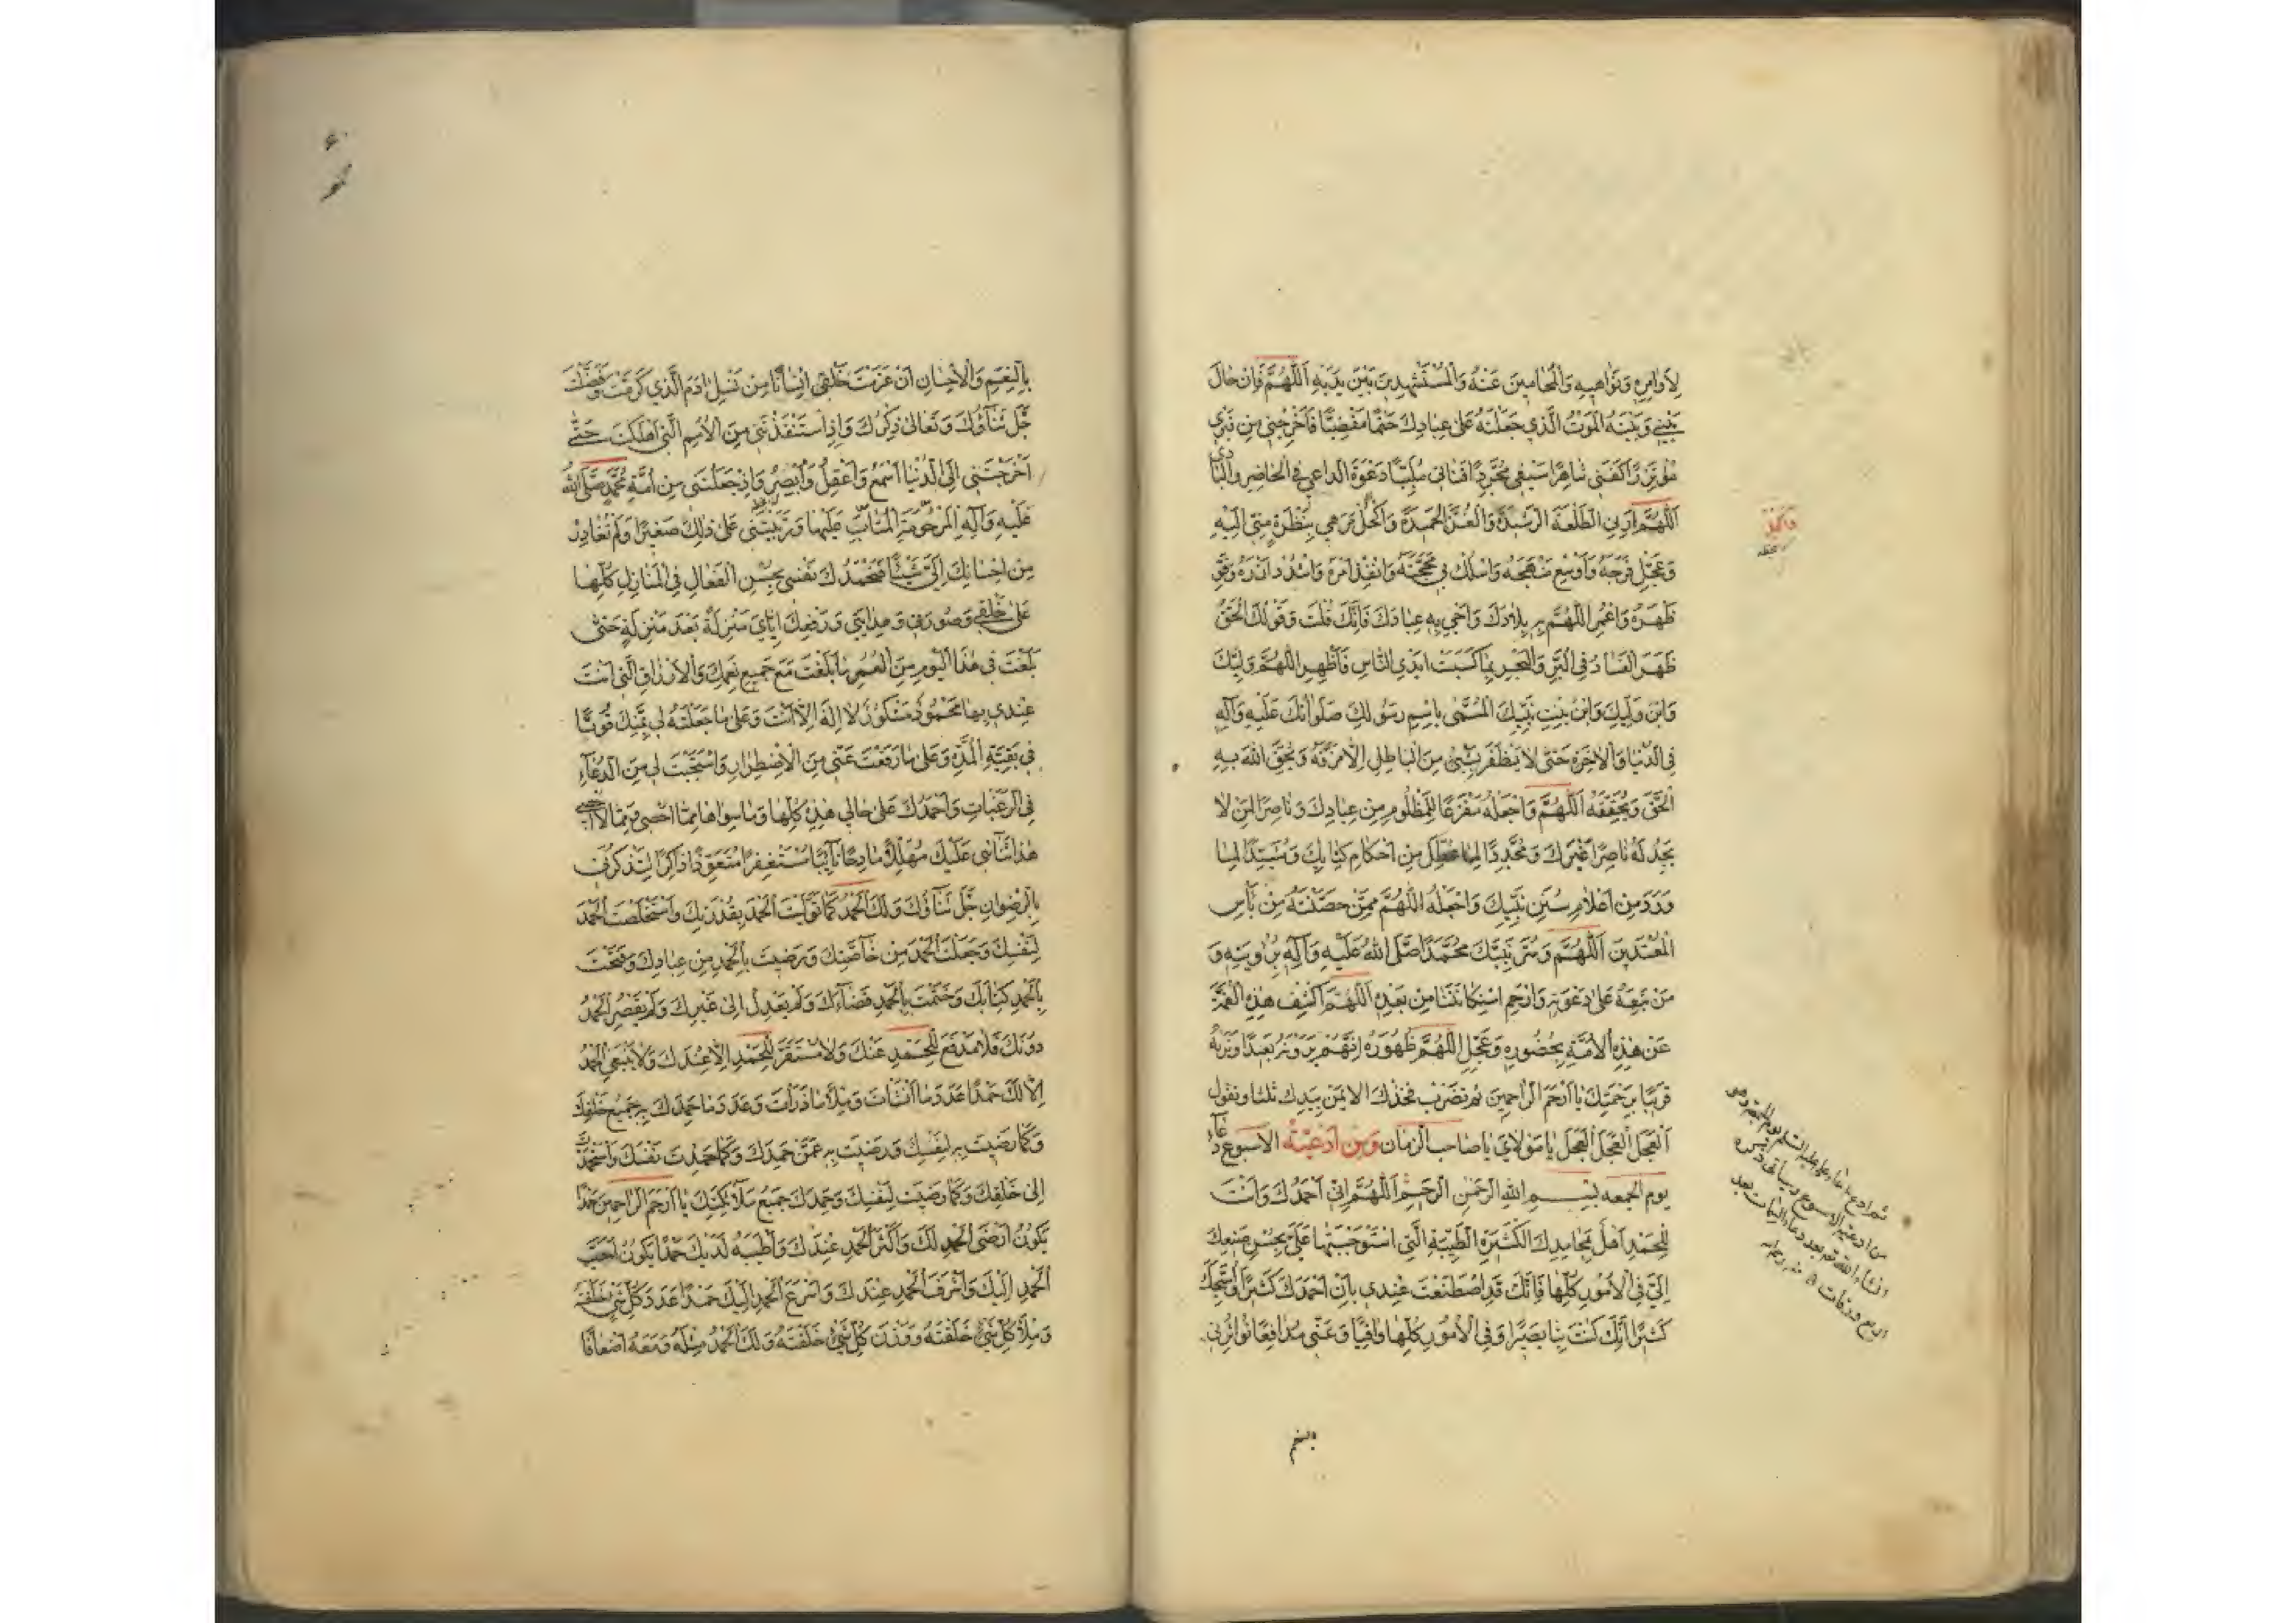 لِأَوَامِرِهِ وَنَوَاهِيهِ وَالْمُحَامِينَ عَنْهُ وَالْمُسْتَشْهَدِينَ بَيْنَ يَدَيْهِ اَللّٰهُمَّ فَاِنْ حَالَ
بَيْنِي وَبَيْنَهُ الْمَوْتُ الَّذِي جَعَلْتَهُ عَلَى عِبَادِكَ حَتْمًا مَقْضِيًّا فَاَخْرِجْنِي مِنْ قَبْرِي
مُؤْتَزِرًا كَفَنِي شَاهِرًا سَيْفِي مُجَرِّدًا قَنَاتِي مُلَبِّيًا دَعْوَةَ الدَّاعِي فِي الْحَاضِرِ وَالْبَادِي
اَللّٰهُمَّ اَرِنِي الطَّلْعَةَ الرَّشِيدَةَ وَالْغُرَّةَ الْحَمِيدَةَ وَاكْحُلْ مَرَهِي بِنَظْرَةٍ مِنِّي اِلَيْهِ
وَعَجِّلْ فَرَجَهُ وَاَوْسِعْ مَنْهَجَهُ وَاسْلُكْ بِي مَحَجَّتَهُ وَانْفِذْ اَمْرَهُ وَاشْدُدْ اَزْرَهُ وَقَوِّ
ظَهْرَهُ وَاعْمُرِ اللّٰهُمَّ بِهِ بِلَادَكَ وَاَحْيِ بِهِ عِبَادَكَ فَاِنَّكَ قُلْتَ وَقَوْلُكَ الْحَقُّ
ظَهَرَ الْفَسَادُ فِي الْبَرِّ وَالْبَحْرِ بِمَا كَسَبَتْ اَيْدِي النَّاسِ فَاَظْهِرِ اللّٰهُمَّ وَلِيَّكَ
وَابْنَ وَلِيِّكَ وَابْنَ بِنْتِ نَبِيِّكَ الْمُسَمّٰى بِاسْمِ رَسُولِكَ صَلَوَاتُكَ عَلَيْهِ وَآلِهِ
فِي الدُّنْيَا وَالْاٰخِرَةِ حَتّٰى لَا يَظْفَرَ بِشَيْءٍ مِنَ الْبَاطِلِ اِلَّا مَزَّقَهُ وَيُحِقَّ اللّٰهُ بِهِ
الْحَقَّ وَيُحَقِّقَهُ اَللّٰهُمَّ وَاجْعَلْهُ مَفْزَعًا لِلْمَظْلُومِ مِنْ عِبَادِكَ وَنَاصِرًا لِمَنْ لَا
يَجِدُ لَهُ نَاصِرًا غَيْرَكَ وَمُجَدِّدًا لِمَا عُطِّلَ مِنْ اَحْكَامِ كِتَابِكَ وَمُشَيِّدًا لِمَا
وَرَدَ مِنْ اَعْلَامِ سُنَنِ نَبِيِّكَ وَاجْعَلْهُ اللّٰهُمَّ مِمَّنْ حَصَّنْتَهُ مِنْ بَأْسِ
الْمُعْتَدِينَ اَللّٰهُمَّ وَسُرَّ نَبِيَّكَ مُحَمَّدًا صَلَّى اللّٰهُ عَلَيْهِ وَآلِهِ بِرُؤْيَتِهِ وَ
مَنْ تَبِعَهُ عَلَى دَعْوَتِهِ وَارْحَمِ اسْتِكَانَتَنَا مِنْ بَعْدِهِ اَللّٰهُمَّ اكْشِفْ هٰذِهِ الْغُمَّةَ
عَنْ هٰذِهِ الْاُمَّةِ بِحُضُورِهِ وَعَجِّلِ اللّٰهُمَّ ظُهُورَهُ اِنَّهُمْ يَرَوْنَهُ بَعِيدًا وَنَرَاهُ
قَرِيبًا بِرَحْمَتِكَ يَا اَرْحَمَ الرَّاحِمِينَ ثم تضرب فخذك الايمن بيدك ثلثا وتقول
اَلْعَجَلَ الْعَجَلَ الْعَجَلَ يَا مَوْلَايَ يَا صَاحِبَ الزَّمَانِ وَمِنْ اَدْعِيَةِ الاسبوع دعاء
يوم الجمعه بِسْمِ اللّٰهِ الرَّحْمٰنِ الرَّحِيمِ اَللّٰهُمَّ اِنِّي اَحْمَدُكَ وَاَنْتَ
لِلْحَمْدِ اَهْلٌ بِمَحَامِدِكَ الْكَثِيرَةِ الطَّيِّبَةِ الَّتِي اسْتَوْجَبْتَهَا عَلَيَّ بِحُسْنِ صَنِيعِكَ
اِلَيَّ فِي الْاُمُورِ كُلِّهَا فَاِنَّكَ قَدِ اصْطَنَعْتَ عِنْدِي بِاَنْ اَحْمَدَكَ كَثِيرًا وَاُسَبِّحَكَ
كَثِيرًا اِنَّكَ كُنْتَ بِنَا بَصِيرًا وَفِي الْاُمُورِ كُلِّهَا وَاقِيًا وَعَنِّي مُدَافِعًا تُوَاتِرُنِي
بِالنِّعَمِ وَالْاِحْسَانِ اَنْ عَزَمْتَ خَلْقِي اِنْسَانًا مِنْ نَسْلِ اٰدَمَ الَّذِي كَرَّمْتَ وَفَضَّلْتَ
جَلَّ ثَنَاؤُكَ وَتَعَالَى ذِكْرُكَ وَاِذِ اسْتَنْقَذْتَنِي مِنَ الْاُمَمِ الَّتِي اَهْلَكْتَ حَتّٰى
اَخْرَجْتَنِي اِلَى الدُّنْيَا اَسْمَعُ وَاَعْقِلُ وَاُبْصِرُ وَاِذْ جَعَلْتَنِي مِنْ اُمَّةِ مُحَمَّدٍ صَلَّى اللّٰهُ
عَلَيْهِ وَآلِهِ الْمَرْحُومَةِ الْمُثَابِ عَلَيْهَا وَرَبَّيْتَنِي عَلَى ذٰلِكَ صَغِيرًا وَلَمْ تُغَادِرْ
مِنْ اِحْسَانِكَ اِلَيَّ شَيْئًا فَتَحْمَدُكَ نَفْسِي بِحُسْنِ الْفِعَالِ فِي الْمَنَازِلِ كُلِّهَا
عَلَى خَلْقِي وَصُورَتِي وَهِدَايَتِي وَرَفْعِكَ اِيَّايَ مَنْزِلَةً بَعْدَ مَنْزِلَةٍ حَتّٰى
بَلَغْتَ بِي هٰذَا الْيَوْمَ مِنَ الْعُمُرِ مَا بَلَغْتَ مَعَ جَمِيعِ نِعَمِكَ وَالْاَرْزَاقِ الَّتِي اَنْتَ
عِنْدِي بِهَا مَحْمُودٌ مَشْكُورٌ لَا اِلٰهَ اِلَّا اَنْتَ وَعَلَى مَا جَعَلْتَهُ لِي بِمَنِّكَ قُوتًا
فِي بَقِيَّةِ الْمُدَّةِ وَعَلَى مَا رَفَعْتَ عَنِّي مِنَ الْاِضْطِرَارِ وَاسْتَجَبْتَ لِي مِنَ الدُّعَاءِ
فِي الرَّغَبَاتِ وَاَحْمَدُكَ عَلَى حَالِي هٰذِهِ كُلِّهَا وَمَا سِوَاهَا مِمَّا اُحْصِي وَمِمَّا لَا اُحْصِي
هٰذَا ثَنَائِي عَلَيْكَ مُهَلِّلًا مَادِحًا تَائِبًا مُسْتَغْفِرًا مُتَعَوِّذًا ذَاكِرًا لِتَذْكُرَنِي
بِالرِّضْوَانِ جَلَّ ثَنَاؤُكَ وَلَكَ الْحَمْدُ كَمَا تَوَلَّيْتَ الْحَمْدَ بِقُدْرَتِكَ وَاسْتَخْلَصْتَ الْحَمْدَ
لِنَفْسِكَ وَجَعَلْتَ الْحَمْدَ مِنْ خَاصَّتِكَ وَرَضِيتَ بِالْحَمْدِ مِنْ عِبَادِكَ وَفَتَحْتَ
بِالْحَمْدِ كِتَابَكَ وَخَتَمْتَ بِالْحَمْدِ قَضَاءَكَ وَلَمْ يَعْدِلْ اِلَى غَيْرِكَ وَلَمْ يَقْصُرِ الْحَمْدُ
دُونَكَ فَلَا مَدْفَعَ لِلْحَمْدِ عَنْكَ وَلَا مُسْتَقَرَّ لِلْحَمْدِ اِلَّا عِنْدَكَ وَلَا يَنْبَغِي الْحَمْدُ
اِلَّا لَكَ حَمْدًا عَدَدَ مَا اَنْشَأْتَ وَمِلْأَ مَا ذَرَأْتَ وَعَدَدَ مَا حَمِدَكَ بِهِ جَمِيعُ خَلْقِكَ
وَكَمَا رَضِيتَ بِهِ لِنَفْسِكَ وَرَضِيتَ بِهِ عَمَّنْ حَمِدَكَ وَكَمَا حَمِدْتَ نَفْسَكَ وَاسْتَحْمَدْتَ
اِلَى خَلْقِكَ وَكَمَا رَضِيتَ لِنَفْسِكَ وَحَمِدَكَ جَمِيعُ مَلَائِكَتِكَ يَا اَرْحَمَ الرَّاحِمِينَ حَمْدًا
يَكُونُ اَرْضَى الْحَمْدِ لَكَ وَاَكْثَرَ الْحَمْدِ عِنْدَكَ وَاَطْيَبَهُ لَدَيْكَ حَمْدًا يَكُونُ اَحَبَّ
الْحَمْدِ اِلَيْكَ وَاَشْرَفَ الْحَمْدِ عِنْدَكَ وَاَسْرَعَ الْحَمْدِ اِلَيْكَ حَمْدًا عَدَدَ كُلِّ شَيْءٍ خَلَقْتَهُ
وَمِلْأَ كُلِّ شَيْءٍ خَلَقْتَهُ وَوَزْنَ كُلِّ شَيْءٍ خَلَقْتَهُ وَلَكَ الْحَمْدُ مِثْلَهُ وَمَعَهُ اَضْعَافًا